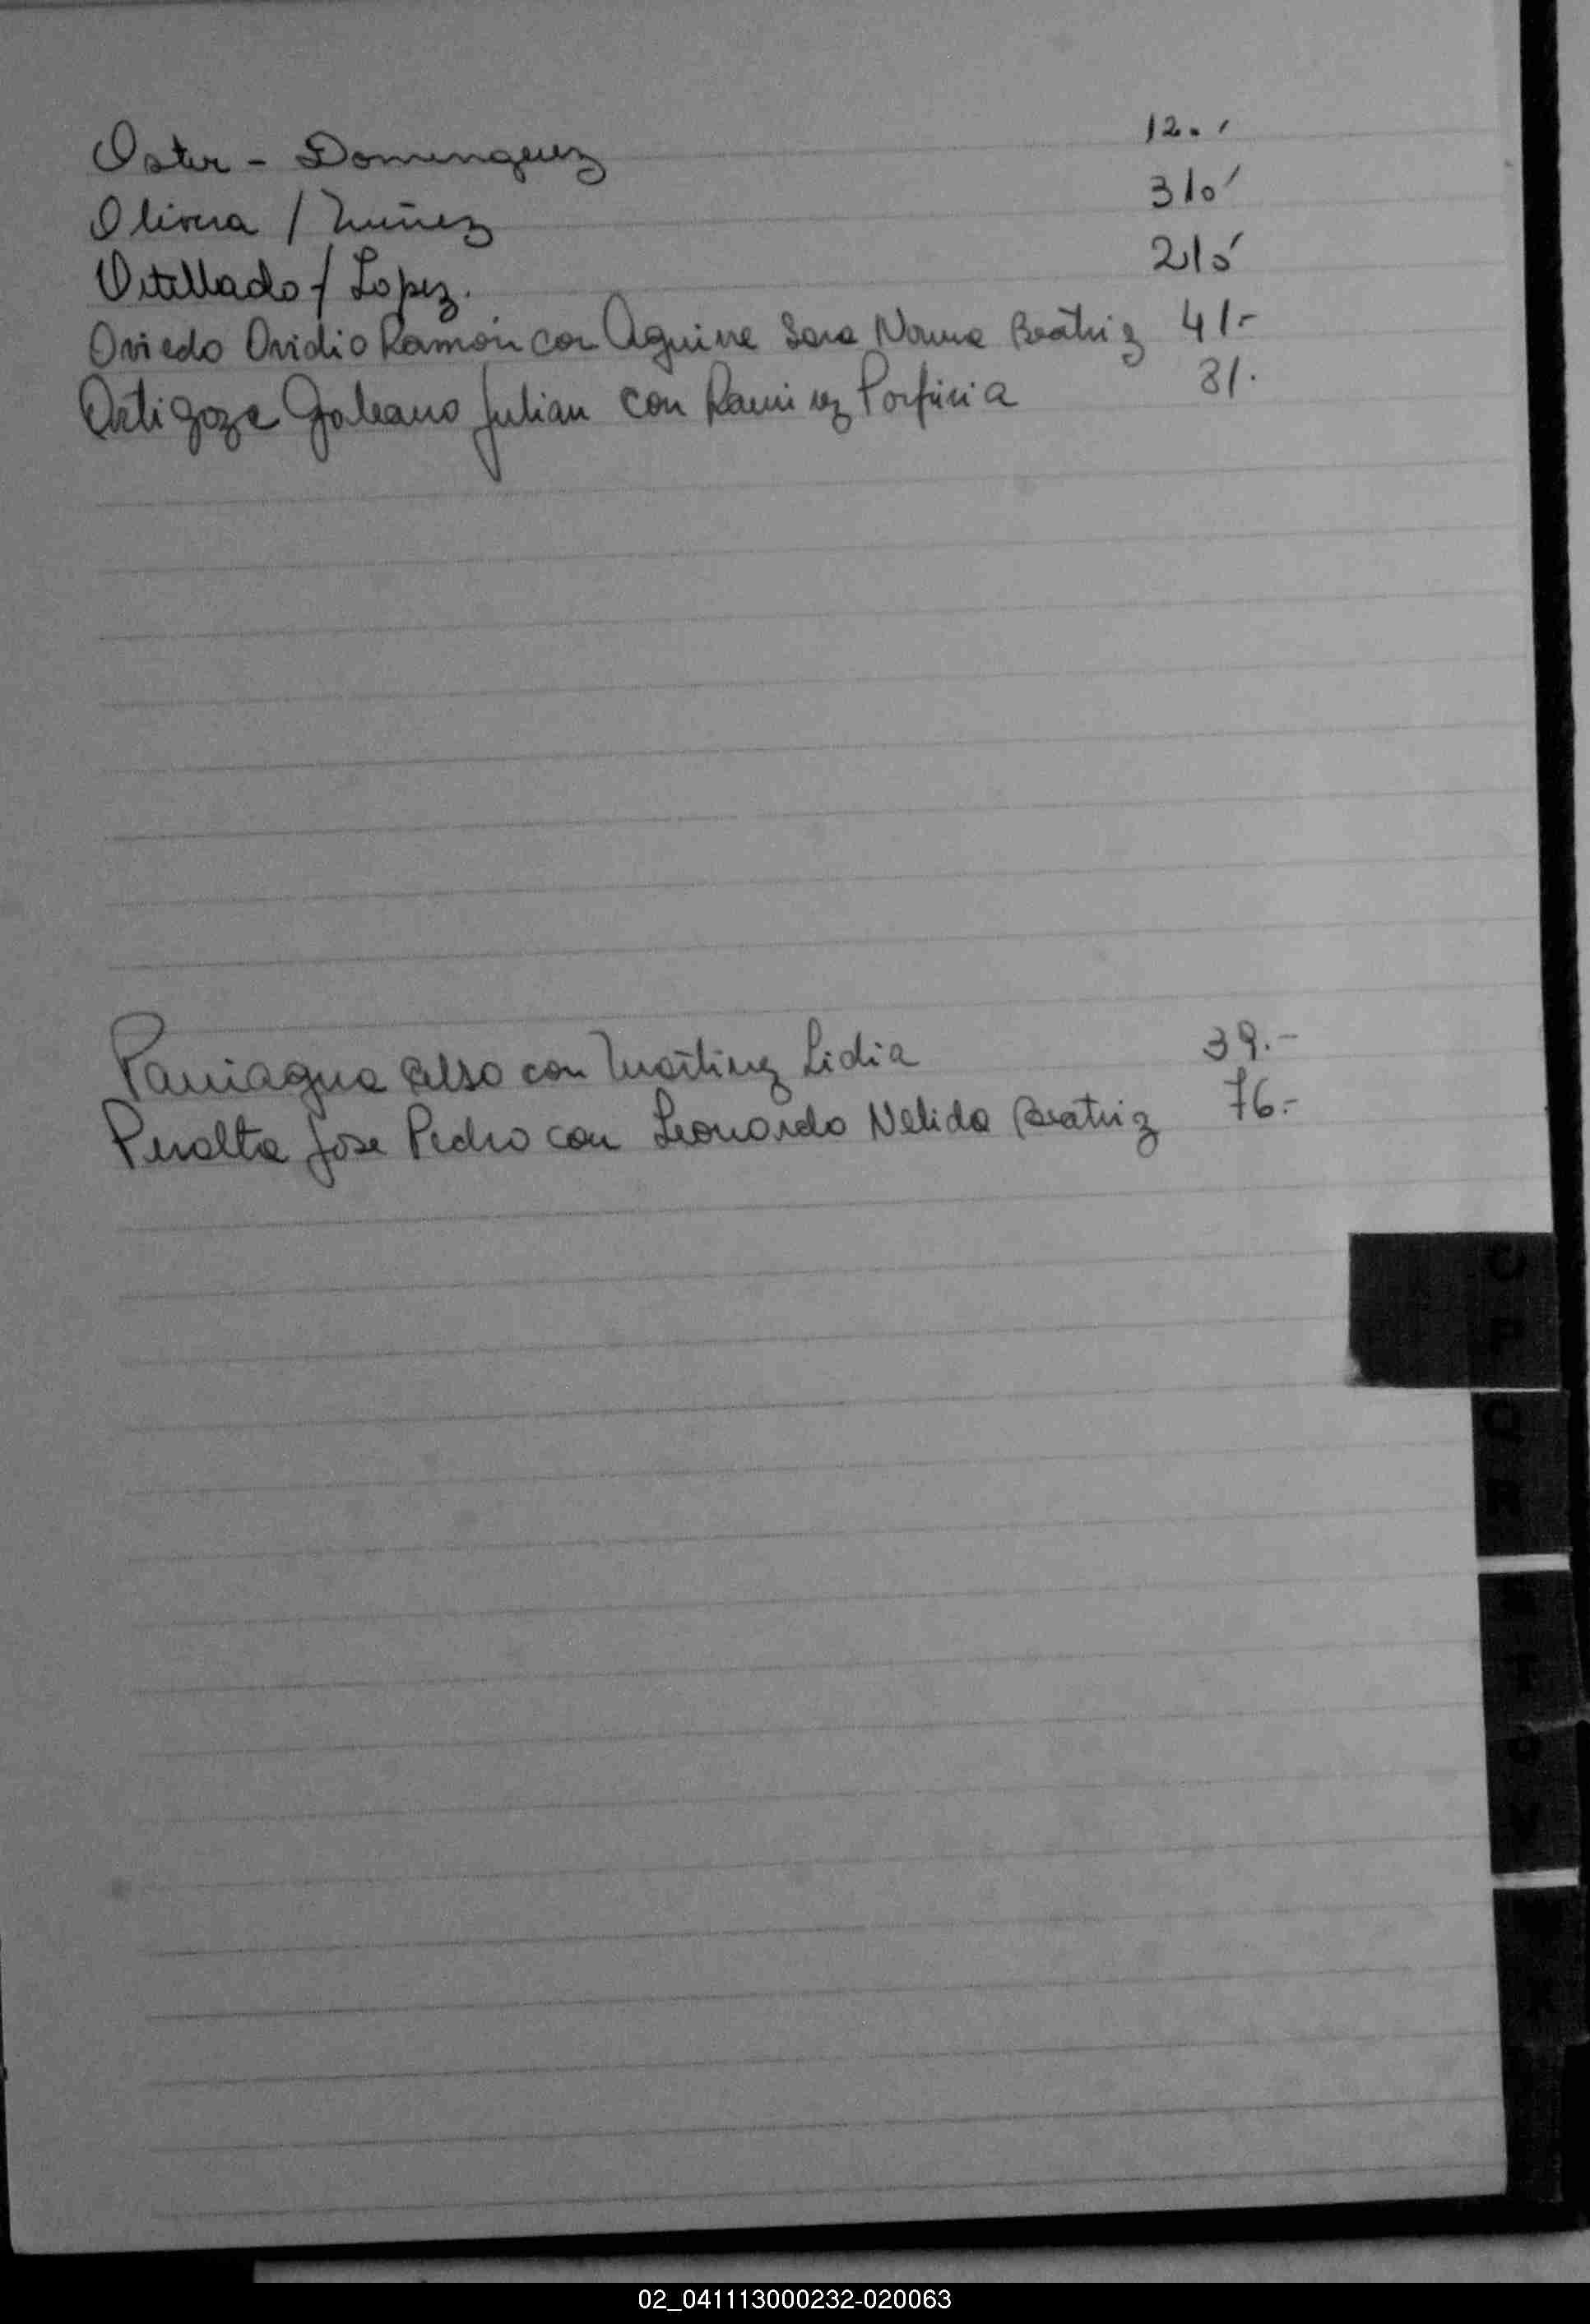 Oster - Dominguez 12.-
Olivera / Nuñez 31.-
Vitillado / Lopez. 21.-
Oviedo Ovidio Ramón con Aguirre Sara Norma Beatriz 41.-
Ortigoza Galeano Julian con Ramirez Porfiria 81.
Paniagua Celso con Martinez Lidia 39.-
Peralta Jose Pedro con Leonardo Nelida Beatriz 76.-
O
P
Q
R
T
V
02_041113000232-020063